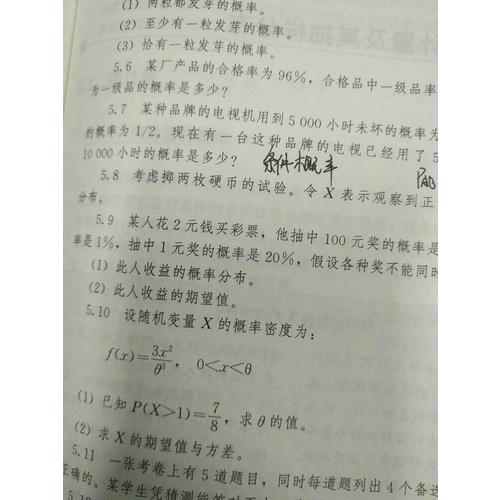 (1) 两粒都发芽的概率。
(2) 至少有一粒发芽的概率。
(3) 恰有一粒发芽的概率。
5.6 某厂产品的合格率为96%，合格品中一级品率
为一级品的概率是多少？
5.7 某种品牌的电视机用到5 000小时未坏的概率为
的概率为1/2。现在有一台这种品牌的电视已经用了5
10 000小时的概率是多少？ 条件概率
5.8 考虑掷两枚硬币的试验。令X表示观察到正
分布。
5.9 某人花2元钱买彩票，他抽中100元奖的概率是
率是1%，抽中1元奖的概率是20%，假设各种奖不能同时
(1) 此人收益的概率分布。
(2) 此人收益的期望值。
5.10 设随机变量X的概率密度为：
f(x)=3x²/θ³， 0<x<θ
(1) 已知P(X>1)=7/8，求θ的值。
(2) 求X的期望值与方差。
5.11 一张考卷上有5道题目，同时每道题列出4个备选
正确的。某学生凭猜测能答对